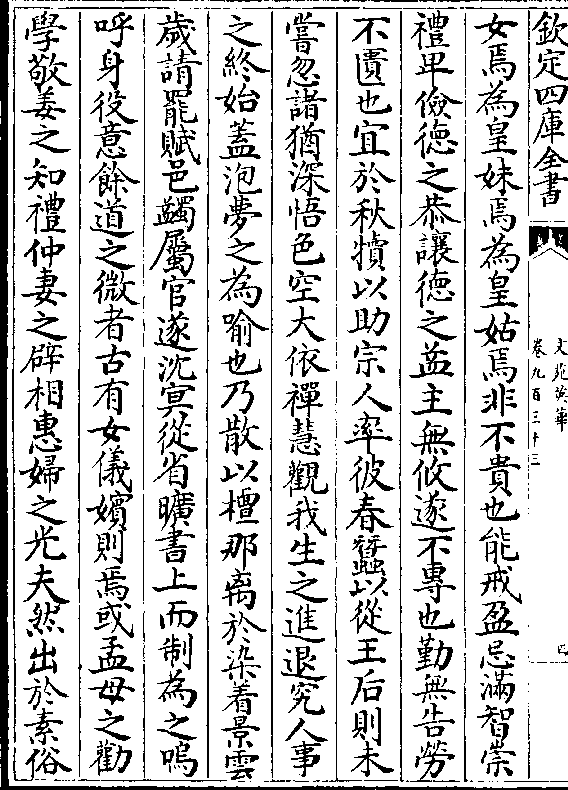 欽定四庫全書
文苑英華
卷九百三十三
女焉為皇妹焉為皇姑焉非不貴也能戒盈忌滿智崇
禮卑儉德之恭讓德之益主無攸遂不專也勤無告勞
不匱也宜於秋犢以助宗人率彼春蠶以從王后則未
嘗忽諸猶深悟色空大依禪慧觀我生之進退究人事
之終始蓋泡夢之為喻也乃散以檀那离於染着景雲
歲請罷賦邑蠲屬官遂沈冥從省曠書上而制為之嗚
呼身役意餘道之微者古有女儀嬪則焉或孟母之勸
學敬姜之知禮仲妻之辟相惠婦之光夫然出於素俗